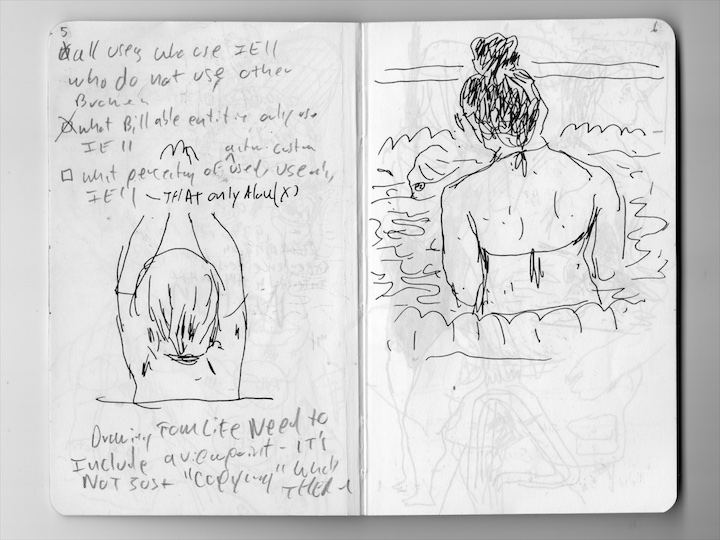 5
all users who use IE11
who do not use other
Browser
what Billable entities only use
IE11
active custom
what percentag of users use only
IE11 - THAT only Allow (X)
Drawing From Life Need to
Include a viewpoint - IT's
NOT Just "copying" what's
THERE
6